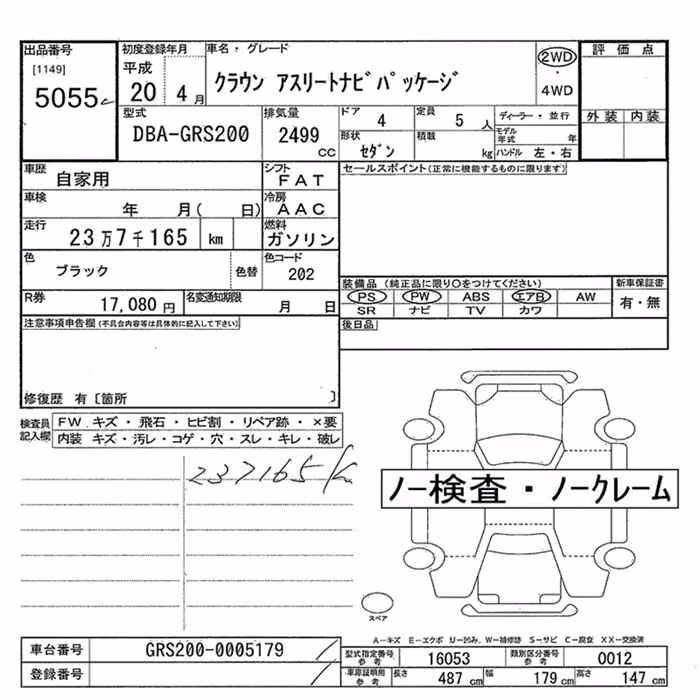 出品番号
[1149]
5055
初度登録年月
平成
20 4月
車名・グレード
クラウン アスリートナビパッケージ
2WD
4WD
評価点
外装 内装
型式
DBA-GRS200
排気量
2499
cc
ドア
4
定員
5 人
ディーラー・並行
形状
セダン
積載
kg
モデル年式 年
ハンドル 左・右
車歴
自家用
シフト
FAT
セールスポイント(正常に機能するものに限ります)
車検
年 月( 日)
冷房
AAC
走行
23万7千165 km
燃料
ガソリン
色
ブラック
色替
色コード
202
装備品 (純正品に限り○をつけてください)
新車保証書
PS PW ABS エアB AW
有・無
SR ナビ TV カワ
R券
17,080 円
名変通知期限
月 日
後日品
注意事項申告欄(不具合内容等は具体的に記入して下さい)
修復歴 有〔箇所 〕
検査員
記入欄
FW キズ・飛石・ヒビ割・リペア跡・×要
内装 キズ・汚レ・コゲ・穴・スレ・キレ・破レ
237165K
ノー検査・ノークレーム
スペア
A-キズ E-エクボ U-凹み、W-補修跡 S-サビ C-腐食 XX-交換済
車台番号
GRS200-0005179
型式指定番号
参考
16053
類別区分番号
参考
0012
登録番号
車庫証明用
参考
長さ 487 cm
幅 179 cm
高さ 147 cm